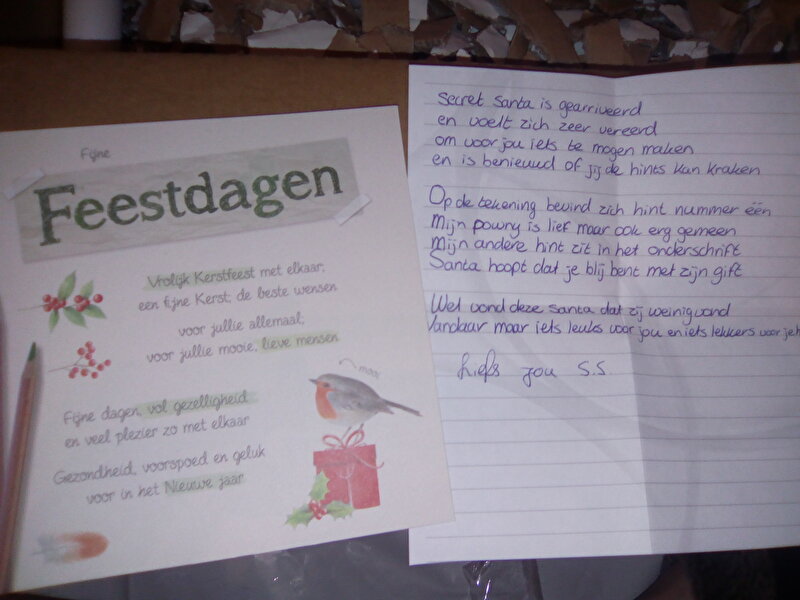 Fijne
Feestdagen
Vrolijk Kerstfeest met elkaar,
een fijne Kerst, de beste wensen
voor jullie allemaal,
voor jullie mooie, lieve mensen
mooi
Fijne dagen, vol gezelligheid
en veel plezier zo met elkaar
Gezondheid, voorspoed en geluk
voor in het Nieuwe jaar
Secret Santa is gearriveerd
en voelt zich zeer vereerd
om voor jou iets te mogen maken
en is benieuwd of jij de hints kan kraken
Op de tekening bevind zich hint nummer één
Mijn powny is lief maar ook erg gemeen
Mijn andere hint zit in het onderschrift
Santa hoopt dat je blij bent met zijn gift
Wel vond deze santa dat zij weinig vond
Vandaar maar iets leuks voor jou en iets lekkers voor je
Liefs jou S.S.